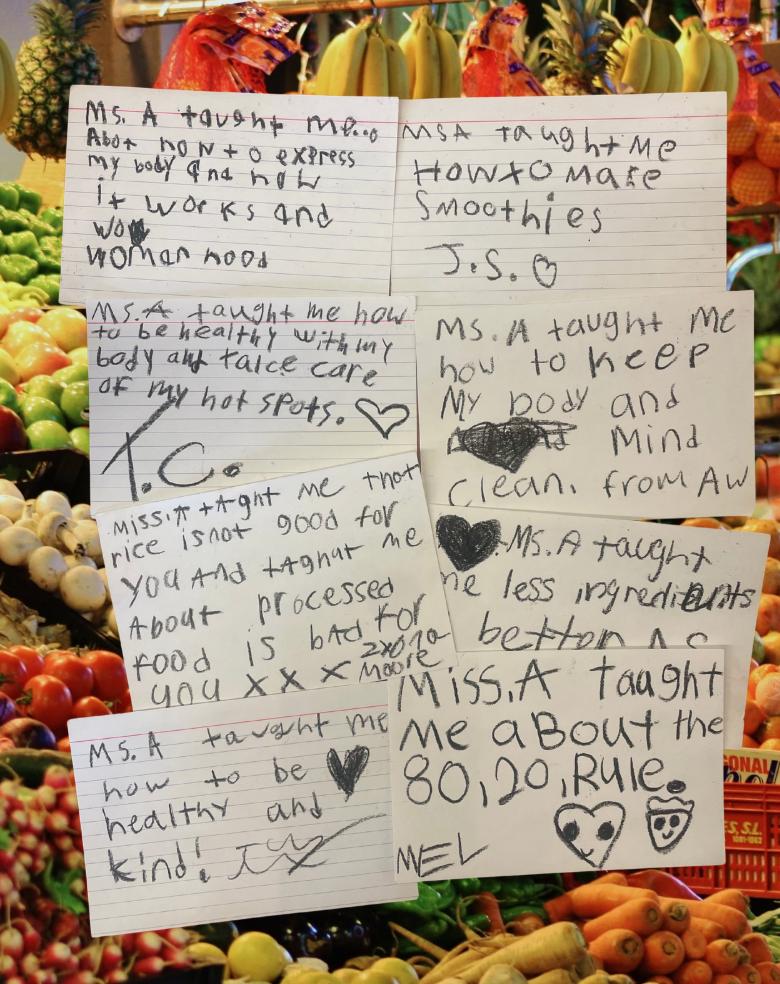 Ms. A taught me...
Abot how to express
my body and how
it works and
wo
woman hood
MSA taught Me
How to Make
Smoothies
J.S.
Ms. A taught me how
to be healthy with my
body and take care
of my hot spots.
T.C.
Ms. A taught Me
how to keep
My body and
Mind
Clean. from AW
Miss.A tAght me that
rice isnot good for
you And tAgnut me
About processed
food is bad for
you x x x
Moore
Ms. A taught
me less ingredients
better A.S
Ms. A taught me
how to be
healthy and
kind!
Miss.A Taught
Me aBout the
80,20,Rule.
MEL
ONAL
ES, S.L.